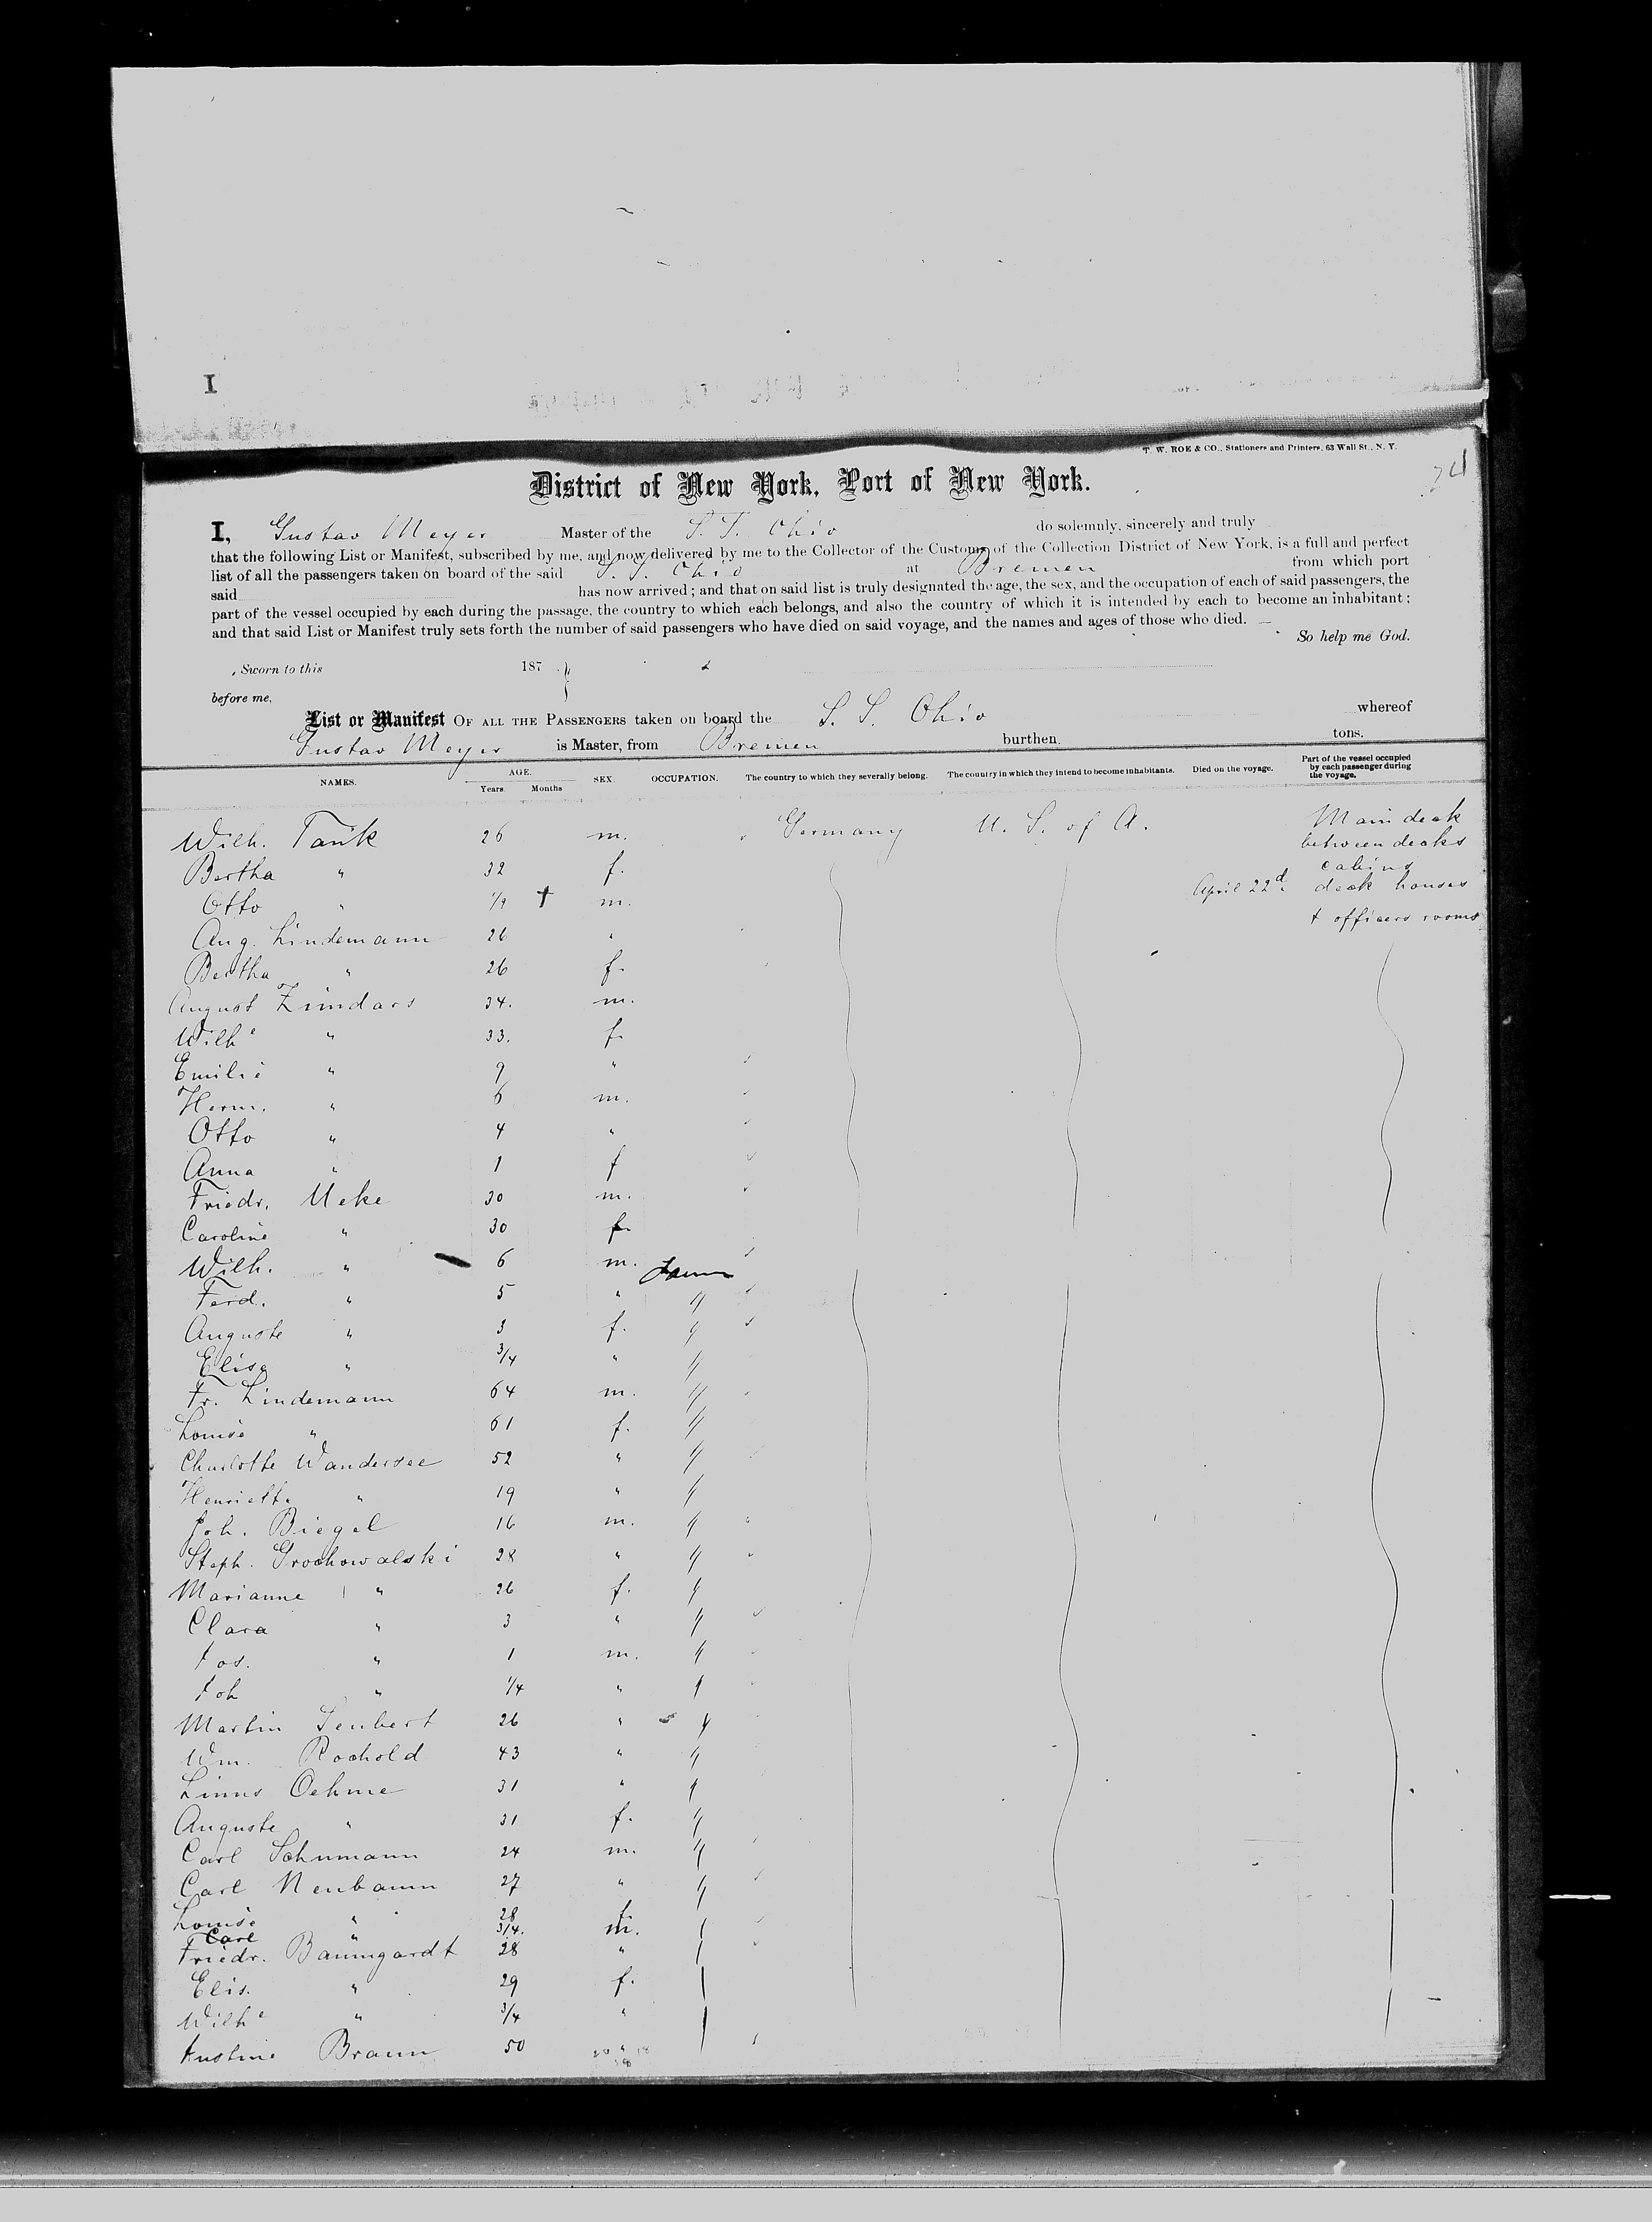 I
T. W. ROE & CO., Stationers and Printers, 63 Wall St., N. Y.
District of New York, Port of New York.
I, Gustav Meyer Master of the S. S. Ohio do solemnly, sincerely and truly
that the following List or Manifest, subscribed by me, and now delivered by me to the Collector of the Customs of the Collection District of New York, is a full and perfect
list of all the passengers taken on board of the said S. S. Ohio at Bremen from which port
said has now arrived; and that on said list is truly designated the age, the sex, and the occupation of each of said passengers, the
part of the vessel occupied by each during the passage, the country to which each belongs, and also the country of which it is intended by each to become an inhabitant;
and that said List or Manifest truly sets forth the number of said passengers who have died on said voyage, and the names and ages of those who died.
So help me God.
Sworn to this 187
before me,
List or Manifest OF ALL THE PASSENGERS taken on board the S. S. Ohio whereof
Gustav Meyer is Master, from Bremen burthen, tons.
NAMES. AGE. Years. Months SEX. OCCUPATION. The country to which they severally belong. The country in which they intend to become inhabitants. Died on the voyage. Part of the vessel occupied by each passenger during the voyage.
Wilh. Tank 26 m. Germany U. S. of A. Main deck
between decks
Bertha " 32 f. cabins
Otto " † m. April 22d. deck houses
+ officers rooms
Aug. Lindemann 26 "
Bertha " 26 f.
August Zimdars 34. m.
Wilhe " 33. f.
Emilie " 9 "
Herm. " 6 m.
Otto " 4 "
Anna " 1 f
Friedr. Ueke 30 m.
Caroline " 30 f.
Wilh. " 6 m.
Ferd. " 5 " "
Auguste " 3 f. "
Elise " 3/4 " "
Fr. Lindemann 64 m. "
Louise " 61 f. "
Charlotte Wandersee 52 " "
Henriette " 19 " "
Joh. Biegel 16 m. "
Steph. Grochowalski 28 " "
Marianne " 26 f. "
Clara " 3 " "
Jos. " 1 m. "
Joh " 1/4 " "
Martin Seubert 26 " "
Wm. Rochold 43 " "
Linus Oehme 31 " "
Auguste " 31 f. "
Carl Schumann 24 m. "
Carl Neubaum 27 " "
Louise " 28 f.
Carl " 3/4. m.
Friedr. Baumgardt 28 "
Elis. " 29 f.
Wilhe " 3/4 "
Justine Braun 50 "